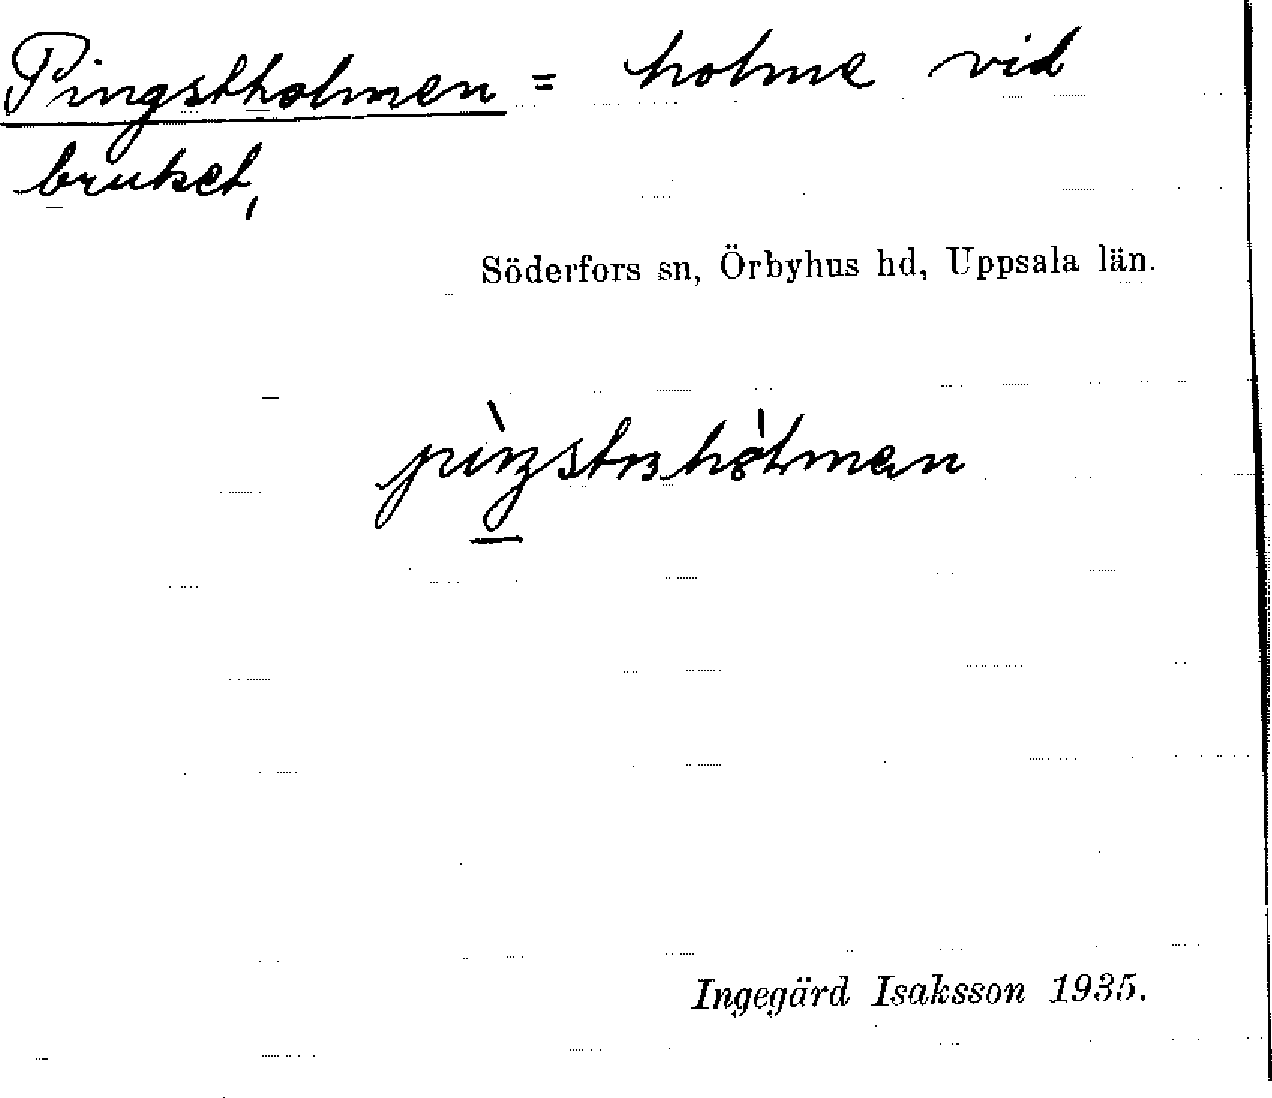 Pingstholmen = holme vid
bruket,
Söderfors sn, Örbyhus hd, Uppsala län.
Ingegärd Isaksson 1935.